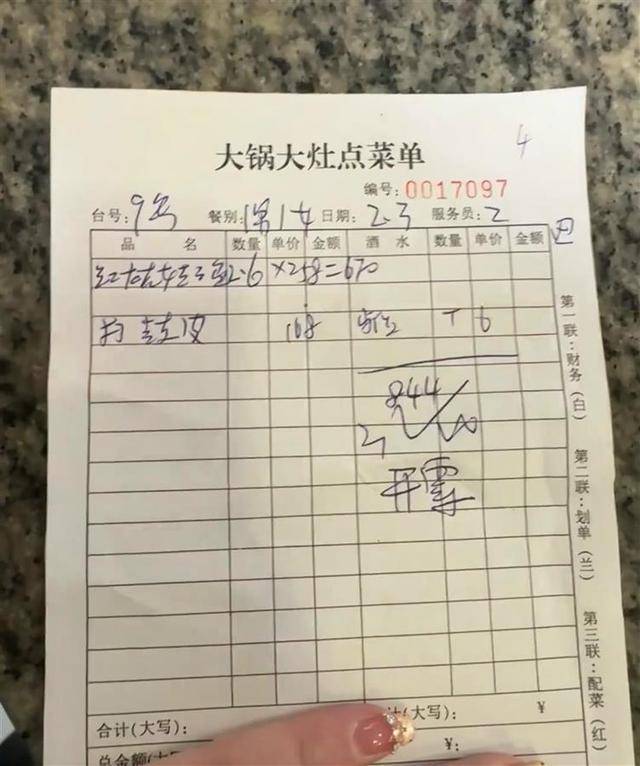 4
大锅大灶点菜单
编号:0017097
台号: 9号 餐别: 日期: 2.3 服务员: 2
品 名 数量 单价 金额 酒 水 数量 单价 金额
2.6 ×258=670
168 6
844
合计(大写): 计(大写): ¥
总金额(大写) ¥:
第一联:财务(白)
第二联:划单(兰)
第三联:配菜(红)